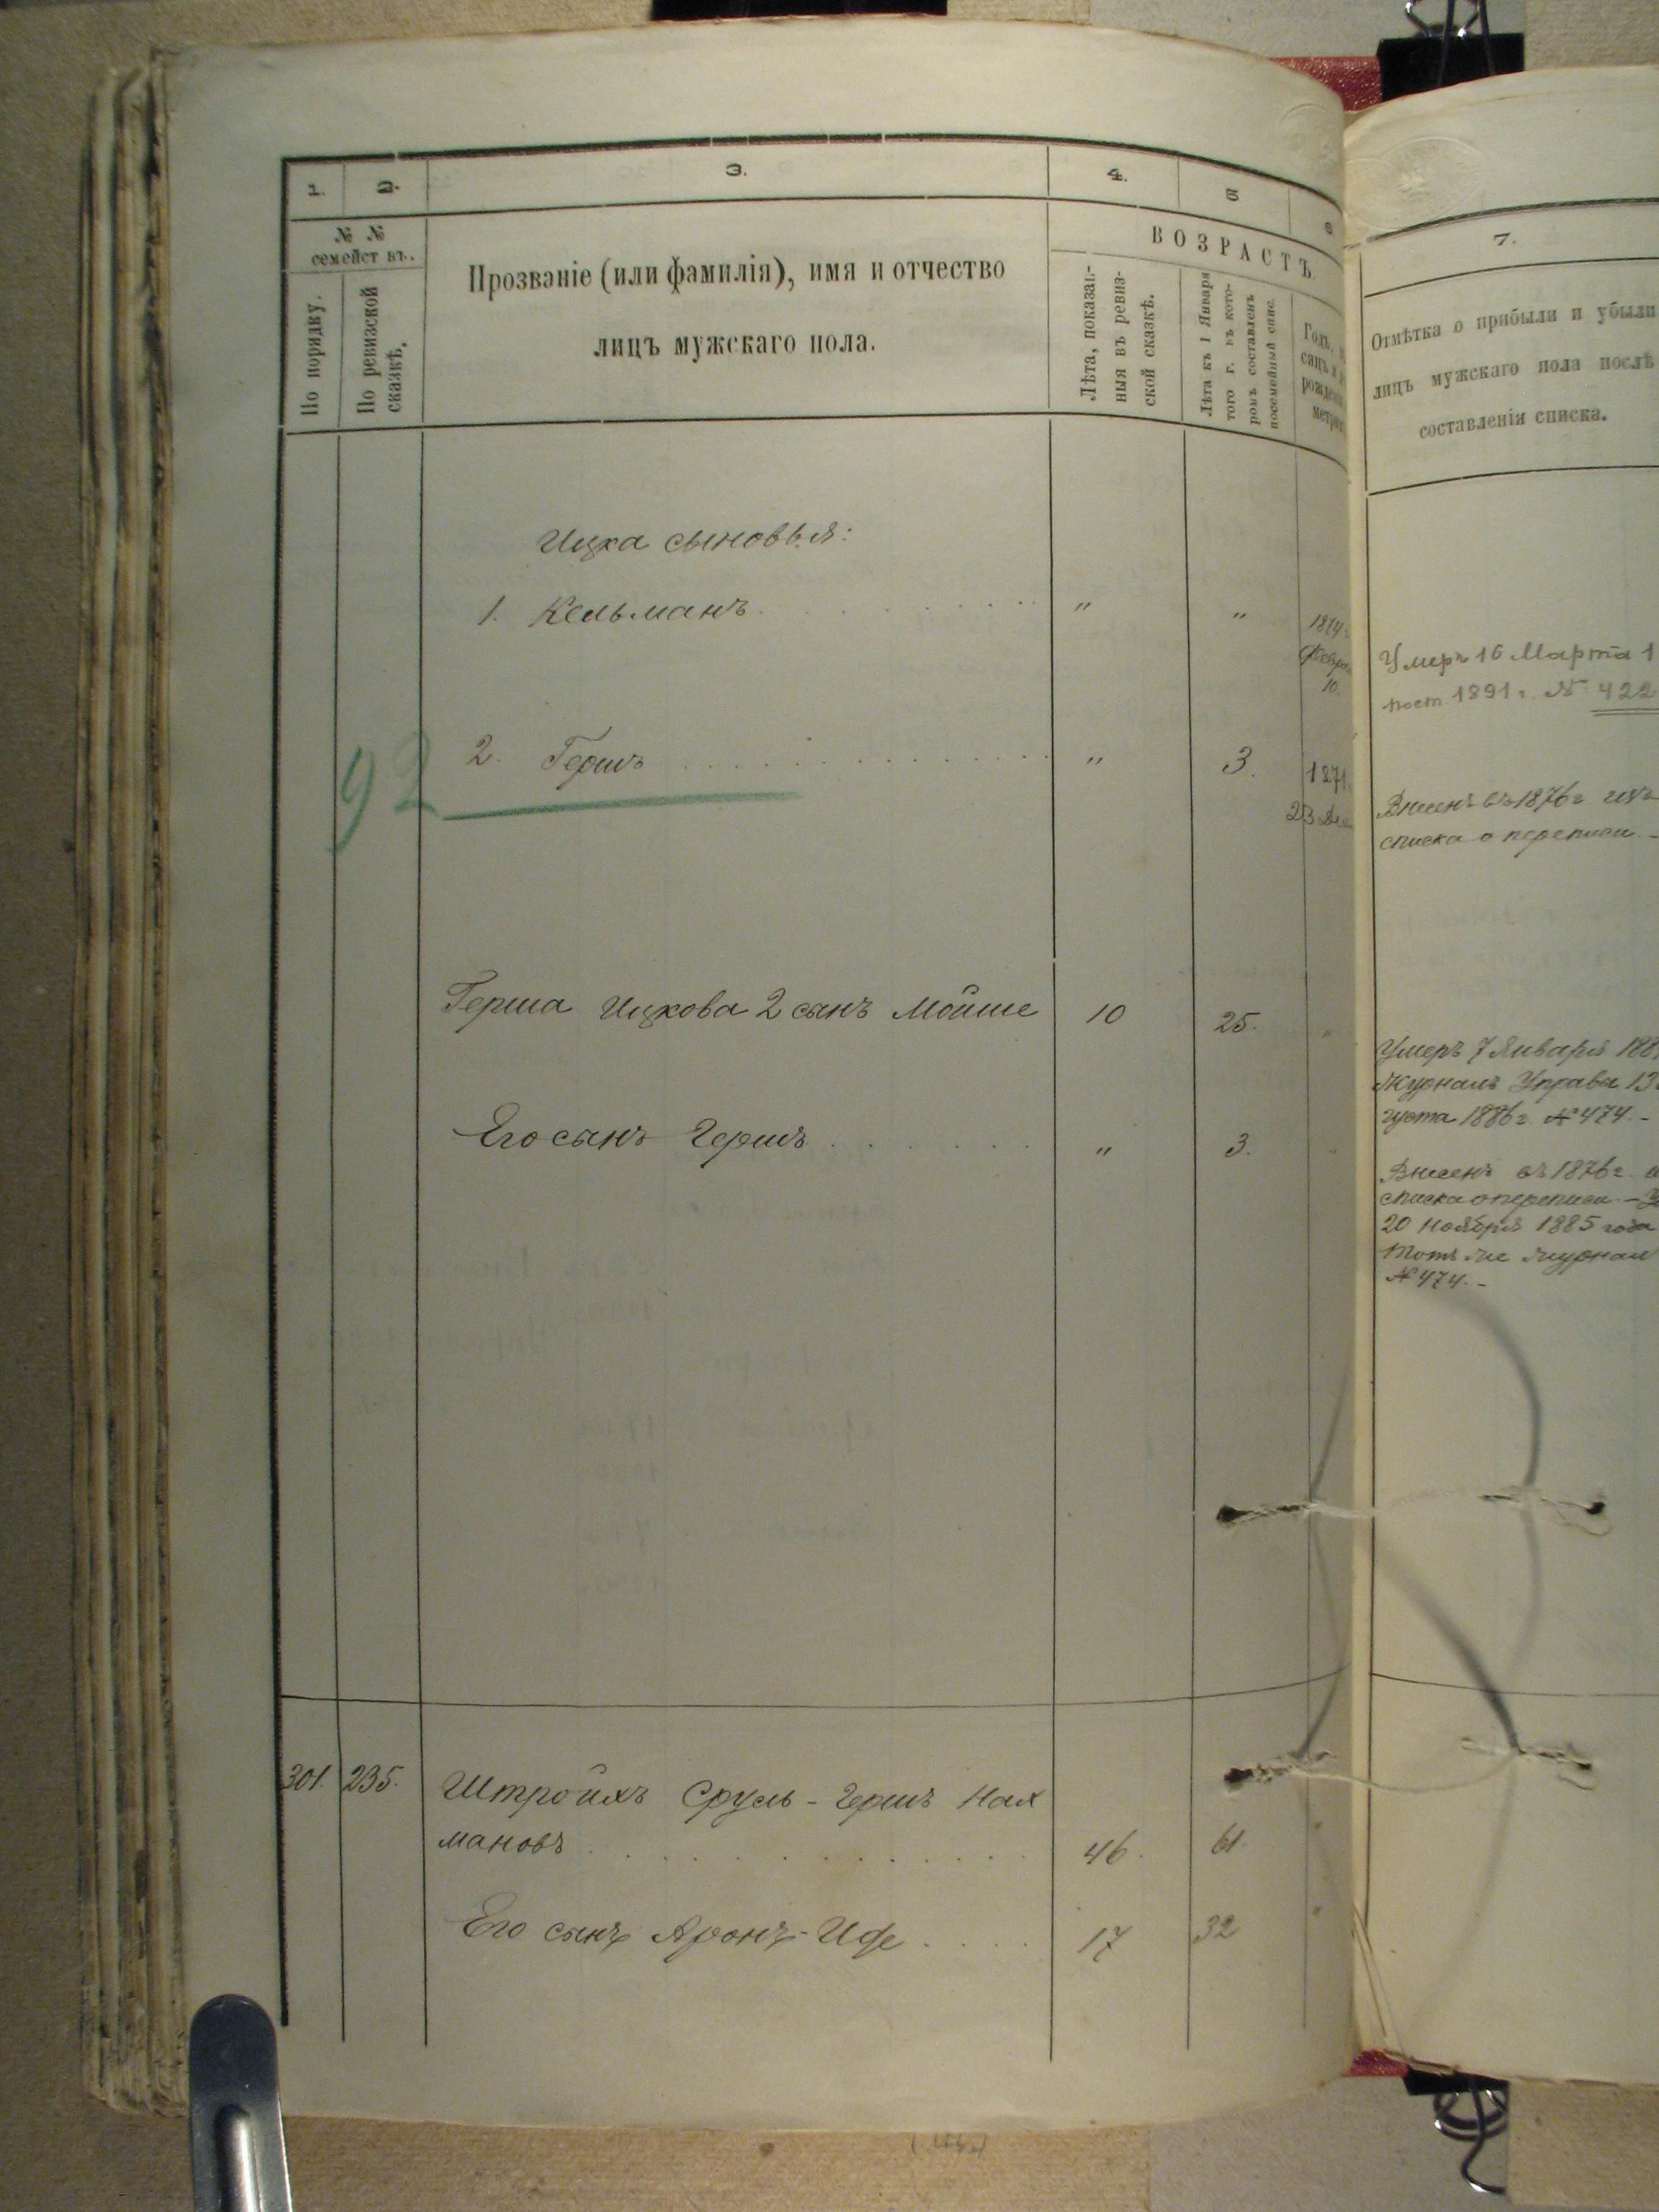 1. 2. 3. 4. 5 6
№ №
семейств въ.
По порядку.
По ревизской
сказкѣ.
Прозваніе (или фамилія), имя и отчество
лицъ мужскаго пола.
ВОЗРАСТЪ
Лѣта, показан-
ныя въ ревиз-
ской сказкѣ.
Лѣта къ 1 Января
того г. въ кото-
ромъ составленъ
посемейный спис.
Годъ,
сяцъ и
рожден
метрик
7.
Отмѣтка о прибыли и убыли
лицъ мужскаго пола послѣ
составленія списка.
Ицка сыновья:
1. Кельманъ . . . . . . . . . " " 1874
Февра
10.
Умеръ 16 Марта 1
пост. 1891 г. № 422
92
2. Гершъ . . . . . . . . . . . . . " 3. 1871.
23 Дек
Внесенъ въ 1876 г. изъ
списка о переписи. -
Герша Ицкова 2 сынъ Мойше 10 25. "
Умеръ 7 Января 188
Журналъ Управы 13
густа 1886 г. № 474. -
Его сынъ Гершъ . . . . . . . " 3.
Внесенъ въ 1876 г. и
списка о переписи. -
20 Ноября 1885 года
тотъ же журнал
№ 474. -
301. 235. Штройхъ Сруль - Гершъ Нах
мановъ . . . . . . . . . . 46. 61. "
Его сынъ Аронъ-Иде . . . . 17 32 "